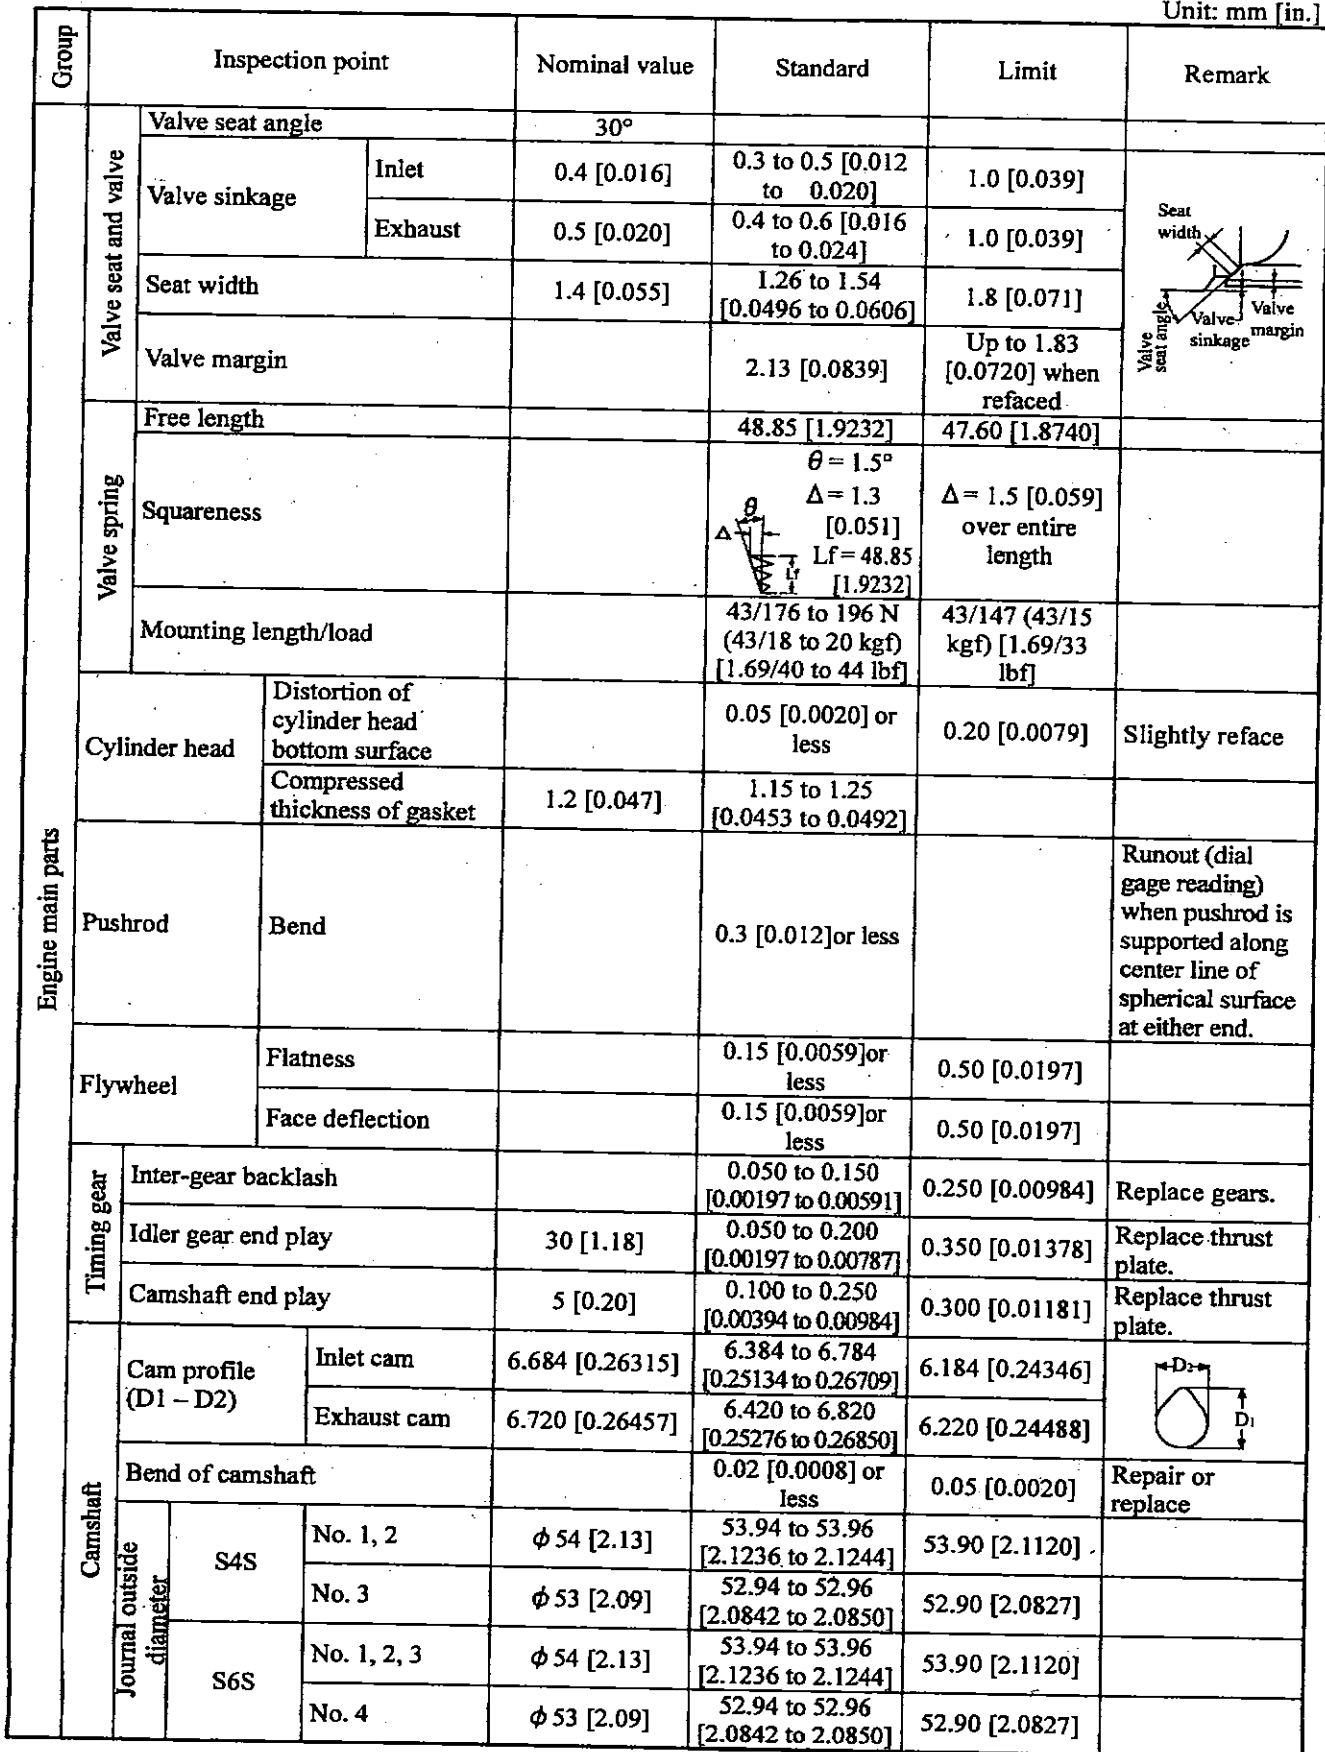 Unit: mm [in.]
Group
Inspection point
Nominal value
Standard
Limit
Remark
Engine main parts
Valve seat and valve
Valve seat angle
30°
Valve sinkage
Inlet
0.4 [0.016]
0.3 to 0.5 [0.012
to 0.020]
1.0 [0.039]
Exhaust
0.5 [0.020]
0.4 to 0.6 [0.016
to 0.024]
1.0 [0.039]
Seat width
1.4 [0.055]
1.26 to 1.54
[0.0496 to 0.0606]
1.8 [0.071]
Valve margin
2.13 [0.0839]
Up to 1.83
[0.0720] when
refaced
Seat
width
Valve
seat angle
Valve
sinkage
Valve
margin
Valve spring
Free length
48.85 [1.9232]
47.60 [1.8740]
Squareness
θ = 1.5°
Δ = 1.3
[0.051]
Lf = 48.85
[1.9232]
θ
Δ
Lf
Δ = 1.5 [0.059]
over entire
length
Mounting length/load
43/176 to 196 N
(43/18 to 20 kgf)
[1.69/40 to 44 lbf]
43/147 (43/15
kgf) [1.69/33
lbf]
Cylinder head
Distortion of
cylinder head
bottom surface
0.05 [0.0020] or
less
0.20 [0.0079]
Slightly reface
Compressed
thickness of gasket
1.2 [0.047]
1.15 to 1.25
[0.0453 to 0.0492]
Pushrod
Bend
0.3 [0.012]or less
Runout (dial
gage reading)
when pushrod is
supported along
center line of
spherical surface
at either end.
Flywheel
Flatness
0.15 [0.0059]or
less
0.50 [0.0197]
Face deflection
0.15 [0.0059]or
less
0.50 [0.0197]
Timing gear
Inter-gear backlash
0.050 to 0.150
[0.00197 to 0.00591]
0.250 [0.00984]
Replace gears.
Idler gear end play
30 [1.18]
0.050 to 0.200
[0.00197 to 0.00787]
0.350 [0.01378]
Replace thrust
plate.
Camshaft end play
5 [0.20]
0.100 to 0.250
[0.00394 to 0.00984]
0.300 [0.01181]
Replace thrust
plate.
Camshaft
Cam profile
(D1 – D2)
Inlet cam
6.684 [0.26315]
6.384 to 6.784
[0.25134 to 0.26709]
6.184 [0.24346]
Exhaust cam
6.720 [0.26457]
6.420 to 6.820
[0.25276 to 0.26850]
6.220 [0.24488]
D2
D1
Bend of camshaft
0.02 [0.0008] or
less
0.05 [0.0020]
Repair or
replace
Journal outside
diameter
S4S
No. 1, 2
ϕ 54 [2.13]
53.94 to 53.96
[2.1236 to 2.1244]
53.90 [2.1120]
No. 3
ϕ 53 [2.09]
52.94 to 52.96
[2.0842 to 2.0850]
52.90 [2.0827]
S6S
No. 1, 2, 3
ϕ 54 [2.13]
53.94 to 53.96
[2.1236 to 2.1244]
53.90 [2.1120]
No. 4
ϕ 53 [2.09]
52.94 to 52.96
[2.0842 to 2.0850]
52.90 [2.0827]